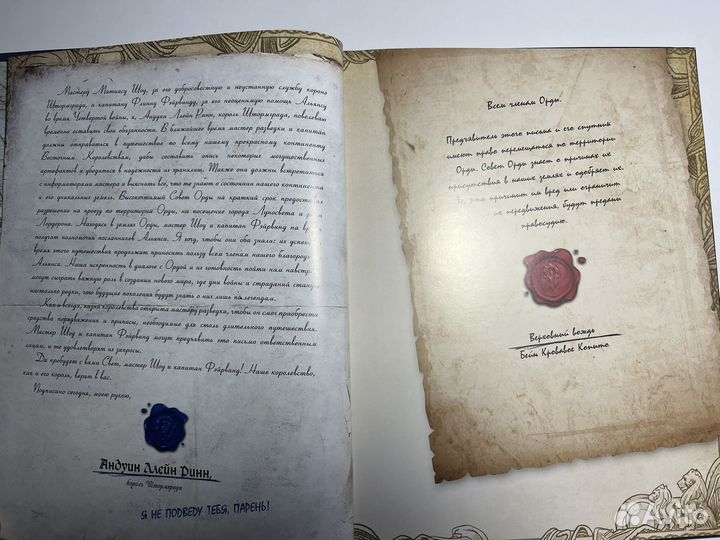 Мастеру Матиасу Шоу, за его добросовестную и неустанную службу короне
Штормграда, и капитану Флинну Фэйрвинду, за его неоценимую помощь Альянсу
во время Четвертой войны, я, Андуин Ллейн Ринн, король Штормграда, повелеваю
временно оставить свои обязанности. В ближайшее время мастер разведки и капитан
должны отправиться в путешествие по всему нашему прекрасному континенту
Восточным Королевствам, дабы составить опись некоторых могущественных
артефактов и убедиться в надежности их хранилищ. Также они должны встретиться
с информаторами мастера и выяснить все, что те знают о состоянии нашего континента
и его уникальных земель. Высокочтимый Совет Орды на краткий срок предоставил
разрешение на проезд по территории Орды, на посещение города Луносвета и
Лордерона. Находясь в землях Орды, мастер Шоу и капитан Фэйрвинд на вр
получат полномочия посланников Альянса. Я хочу, чтобы они оба знали: их успех
время этого путешествия продолжат приносить пользу всем членам нашего благород
Альянса. Наша искренность в диалоге с Ордой и их готовность пойти нам навстр
могут сыграть важную роль в создании нового мира, где дни войны и страданий стану
настолько редки, что будущие поколения будут знать о них лишь по легендам.
Как и всегда, казна королевства открыта мастеру разведки, чтобы он смог приобрести
средства передвижения и припасы, необходимые для столь длительного путешествия.
Мастер Шоу и капитан Фэйрвинд могут предъявить это письмо ответственным
лицам, и те удовлетворят их запросы.
Да пребудет с вами Свет, мастер Шоу и капитан Фэйрвинд! Наше королевство,
как и его король, верят в вас.
Подписано сегодня, моею рукою,
Андуин Ллейн Ринн,
король Штормграда
Я НЕ ПОДВЕДУ ТЕБЯ, ПАРЕНЬ!
Всем членам Орды.
Предъявитель этого письма и его спутник
имеют право перемещаться по территории
Орды. Совет Орды знает о причинах их
присутствия в наших землях и одобряет их.
Те, кто причинит им вред или ограничит
их передвижения, будут преданы
правосудию.
Верховный вождь
Бейн Кровавое Копыто
Avito